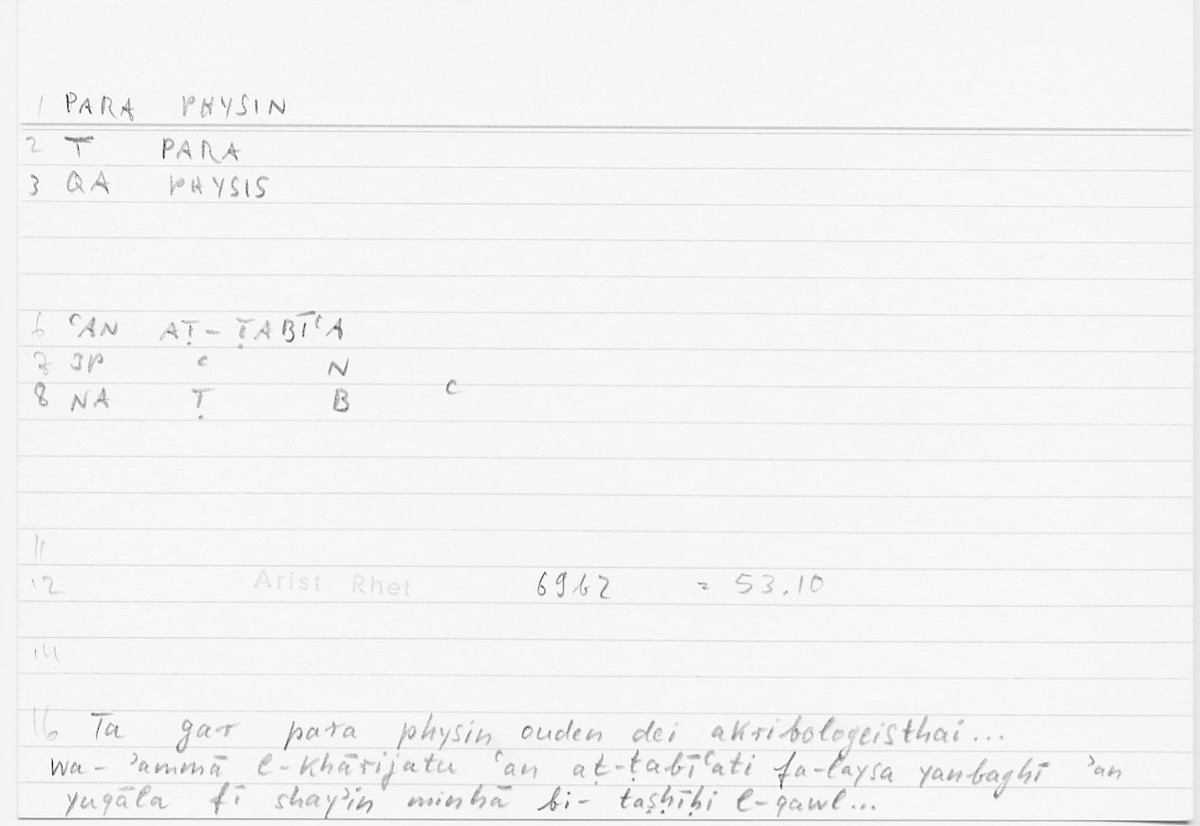 1 PARA PHYSIN
2 T PARA
3 QA PHYSIS
6 ʿAN AṬ-ṬABĪʿA
7 JP ʿ N
8 NA Ṭ B ʿ
11
12 Arist Rhet 69b2 = 53.10
14
16 Ta gar para physin ouden dei akribologeisthai...
wa-ʾammā l-khārijatu ʿan aṭ-ṭabīʿati fa-laysa yanbaghī ʾan
yuqāla fī shayʾin minhā bi-taṣḥīḥi l-qawl...